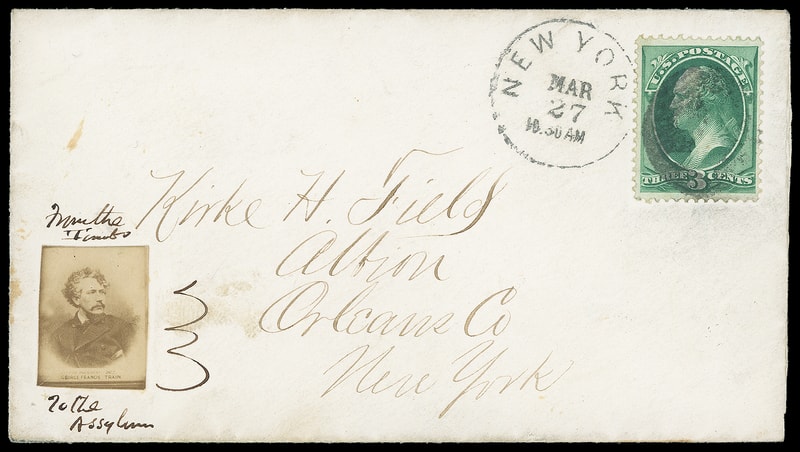 NEW YORK
MAR
27
10.30 AM
U.S. POSTAGE
THREE 3 CENTS
Kirke H. Field
Albion
Orleans Co
New York
From the
Tombs
GEORGE FRANCIS TRAIN
To the
Assylum